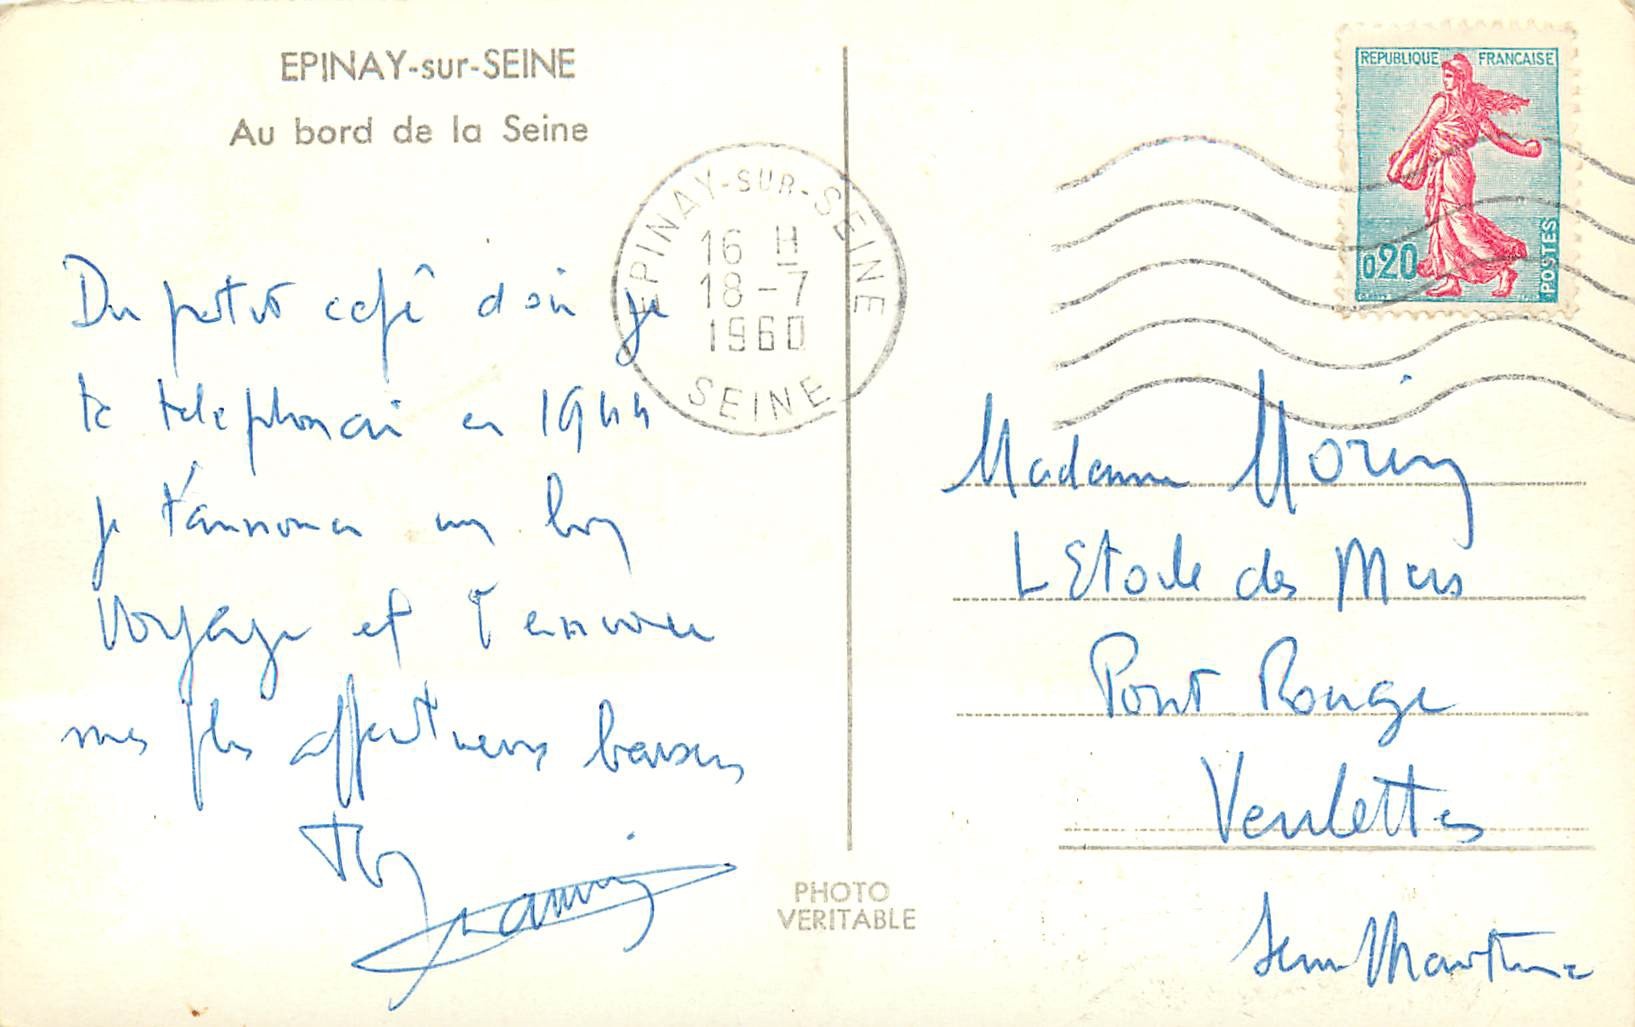 EPINAY-sur-SEINE
Au bord de la Seine
Du petit café d'où je
te téléphonai en 1944
je t'annonce un bon
voyage et t'envoie
mes plus affectueux baisers
EPINAY-SUR-SEINE
16 H
18-7
1960
SEINE
REPUBLIQUE FRANCAISE
0,20
POSTES
Madame Morin
L'Etoile des Mers
Pont Rouge
Veulettes
Seine Maritime
PHOTO
VERITABLE